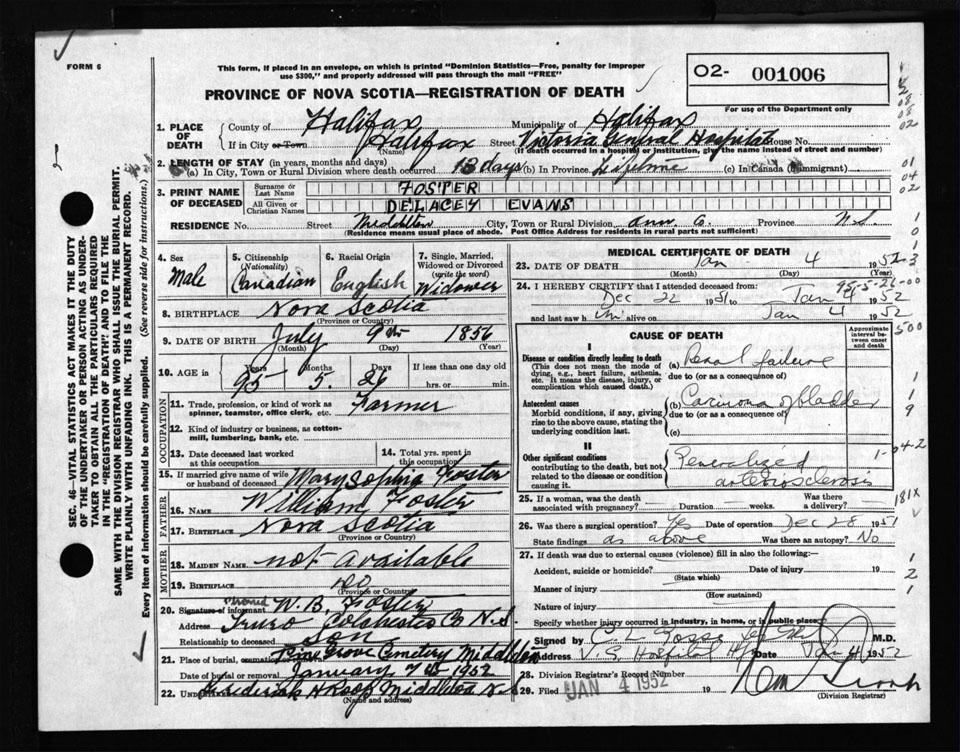 FORM 6
This form, if placed in an envelope, on which is printed "Dominion Statistics—Free, penalty for improper
use $300," and properly addressed will pass through the mail "FREE"
PROVINCE OF NOVA SCOTIA—REGISTRATION OF DEATH
O2- 001006
For use of the Department only
SEC. 46—VITAL STATISTICS ACT MAKES IT THE DUTY
OF THE UNDERTAKER OR PERSON ACTING AS UNDER-
TAKER TO OBTAIN ALL THE PARTICULARS REQUIRED
IN THE "REGISTRATION OF DEATH" AND TO FILE THE
SAME WITH THE DIVISION REGISTRAR WHO SHALL ISSUE THE BURIAL PERMIT.
WRITE PLAINLY WITH UNFADING INK. THIS IS A PERMANENT RECORD.
Every item of information should be carefully supplied. (See reverse side for instructions.)
1. PLACE OF DEATH
County of Halifax Municipality of Halifax
If in City or Town Halifax (Name) Street Victoria General Hospital House No.
(If death occurred in a hospital or institution, give the name instead of street and number)
2. LENGTH OF STAY (in years, months and days)
(a) In City, Town or Rural Division where death occurred 13 days (b) In Province Lifetime (c) In Canada (if immigrant)
3. PRINT NAME OF DECEASED
Surname or Last Name FOSTER
All Given or Christian Names DELACEY EVANS
RESIDENCE No. Street Middleton City, Town or Rural Division Ann. Co. Province N.S.
(Residence means usual place of abode. Post Office Address for residents in rural parts not sufficient)
4. Sex Male
5. Citizenship (Nationality) Canadian
6. Racial Origin English
7. Single, Married, Widowed or Divorced (write the word) Widower
8. BIRTHPLACE Nova Scotia
(Province or Country)
9. DATE OF BIRTH July 9th 1856
(Month) (Day) (Year)
10. AGE in Years 95 Months 5 Days 26 If less than one day old hrs. or min.
OCCUPATION
11. Trade, profession, or kind of work as spinner, teamster, office clerk, etc. Farmer
12. Kind of industry or business, as cotton-mill, lumbering, bank, etc.
13. Date deceased last worked at this occupation
14. Total yrs. spent in this occupation
15. If married give name of wife or husband of deceased Mary Sophia Foster
FATHER
16. NAME William Foster
17. BIRTHPLACE Nova Scotia
(Province or Country)
MOTHER
18. MAIDEN NAME not Available
19. BIRTHPLACE do
(Province or Country)
20. Signature of informant W. B. Foster
Address Truro Colchester Co N.S.
Relationship to deceased Son
21. Place of burial, Pine Grove Cemetery Middleton
Date of burial or removal January 7th 1952
22. Middleton N.S.
(Name and address)
MEDICAL CERTIFICATE OF DEATH
23. DATE OF DEATH Jan 4 1952
(Month) (Day) (Year)
95-5-26-00
24. I HEREBY CERTIFY that I attended deceased from:
Dec 22 1951 to Jan 4 1952
and last saw him alive on Jan 4 1952
CAUSE OF DEATH
Approximate interval between onset and death
I
Disease or condition directly leading to death
(This does not mean the mode of dying, e.g., heart failure, asthenia, etc. It means the disease, injury, or complication which caused death.)
(a) Renal failure
due to (or as a consequence of)
Antecedent causes
Morbid conditions, if any, giving rise to the above cause, stating the underlying condition last.
(b) Carcinoma of bladder
due to (or as a consequence of)
(c)
II
Other significant conditions contributing to the death, but not related to the disease or condition causing it.
Generalized arteriosclerosis
25. If a woman, was the death associated with pregnancy? Duration weeks. Was there a delivery?
181X
26. Was there a surgical operation? Yes Date of operation Dec 28 1951
State findings as above Was there an autopsy? No
27. If death was due to external causes (violence) fill in also the following:—
Accident, suicide or homicide? (State which) Date of injury 19
Manner of injury (How sustained)
Nature of injury
Specify whether injury occurred in industry, in home, or in public place
Signed by M.D.
Address V.G. Hospital Date Jan 4 1952
28. Division Registrar's Record Number
29. Filed JAN 4 1952 19
(Division Registrar)